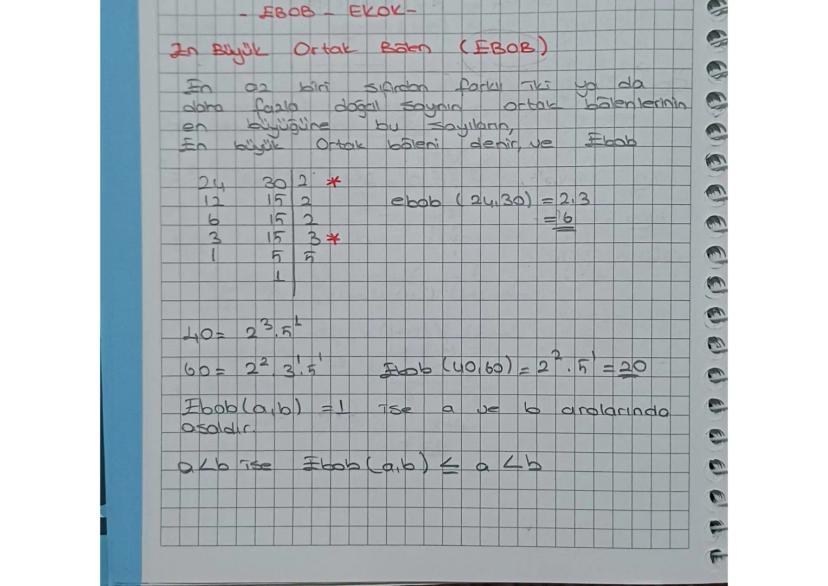 - EBOB - EKOK -
En Büyük Ortak Bölen (EBOB)
En az biri sıfırdan farklı iki ya da
daha fazla doğal sayının ortak bölenlerinin
en büyüğüne bu sayıların,
En büyük Ortak böleni denir, ve Ebob
24 30 | 2 *
12 15 | 2 ebob (24,30) = 2.3
6 15 | 2 = 6
3 15 | 3 *
1 5 | 5
1 |
40 = 2³.5¹
60 = 2².3¹.5¹ Ebob (40,60) = 2².5¹ = 20
Ebob(a,b) = 1 ise a ve b aralarında
asaldır.
a<b ise Ebob(a,b) ≤ a < b